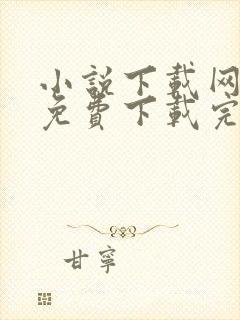 小説下載网
免費下載完
甘寧